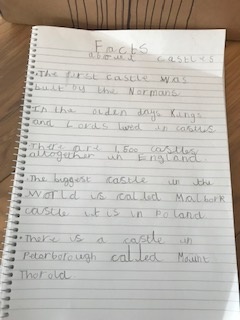 Facts
about castles
• The first castle was
built by the Normans
• In the olden days Kings
and Lords lived in castles
• There are 1,500 castles
altogether in England.
• The biggest castle in the
world is called Malbork
castle it is in Poland
• There is a castle in
Peterborough called Mount
Thorold